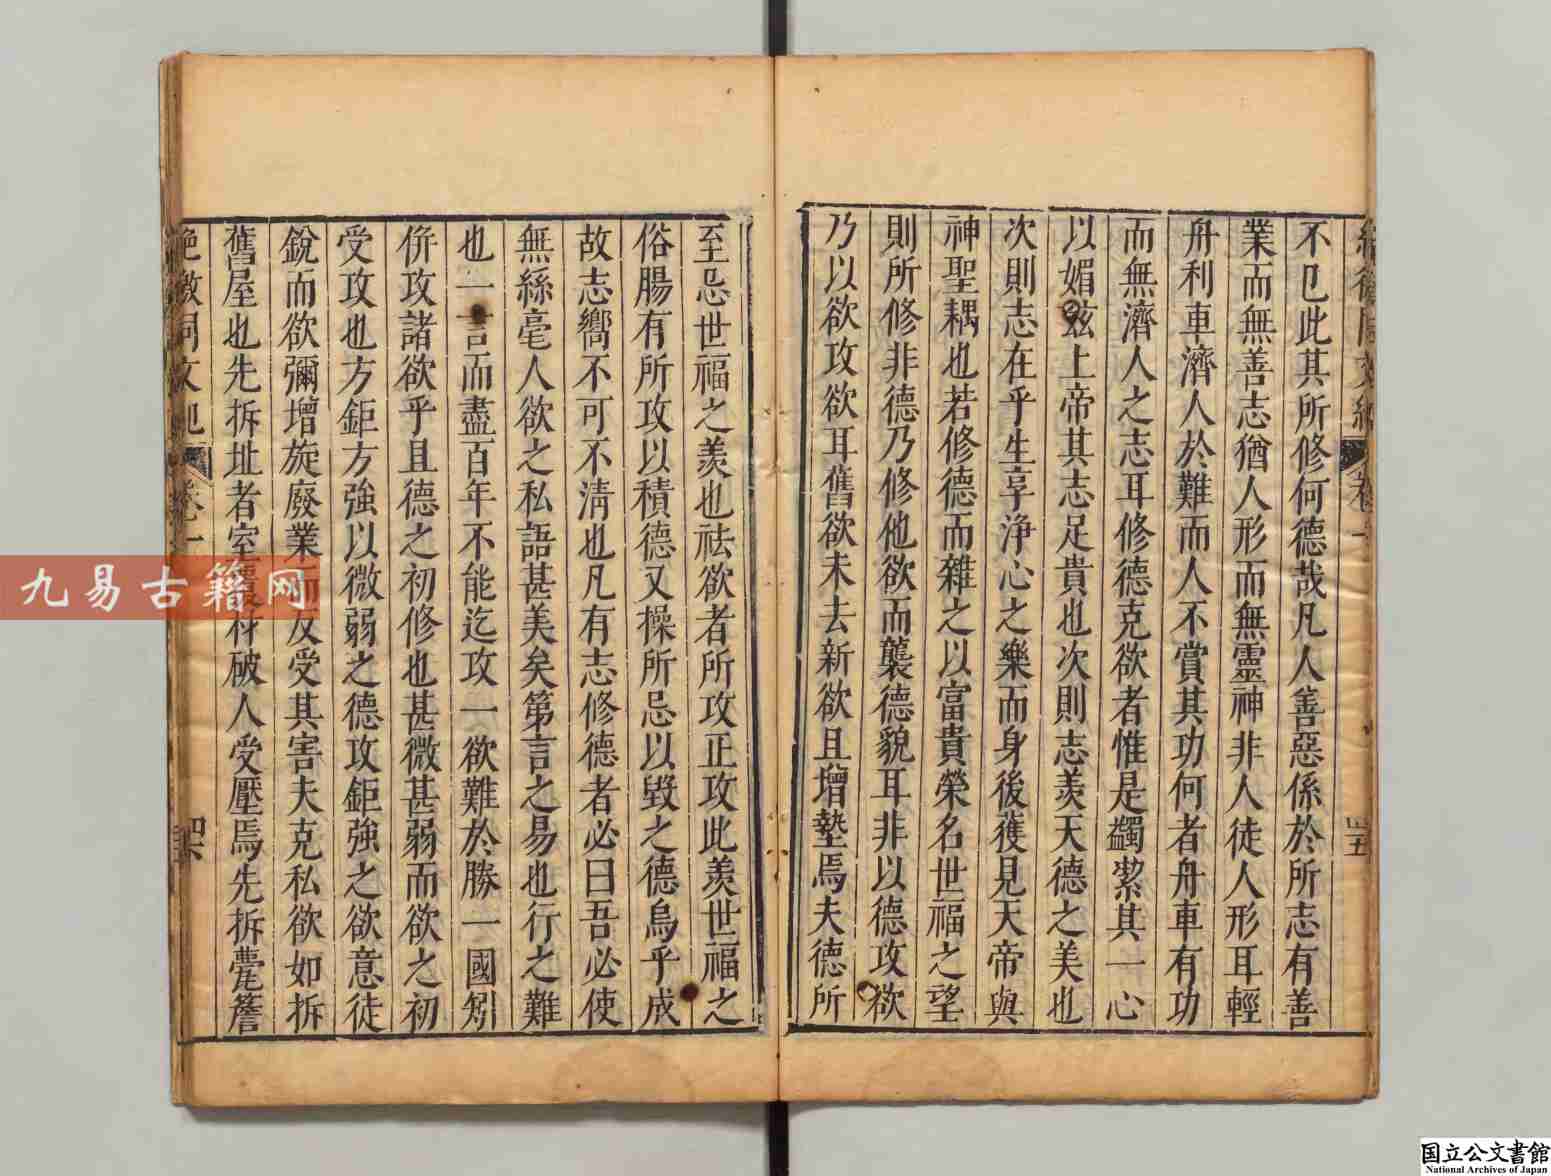 不㔾此其所修何德哉凡人善惡係於所志有善
業而無善志猶人形而無靈神非人徒人形耳輕
舟利車濟人於難而人不賞其功何者舟車有功
而無濟人之志耳修德克欲者惟是蠲潔其一心
以媚玆上帝其志足貴也次則志羨天德之美也
次則志在乎生享浄心之樂而身後獲見天帝與
神聖耦也若修德而雜之以富貴榮名世福之望
則所修非德乃修他欲而襲德貌耳非以德攻欲
乃以欲攻欲耳舊欲未去新欲且增墊焉夫德所
至忌世福之羨也祛欲者所攻正攻此羨世福之
俗腸有所攻以積德又操所忌以毀之德烏乎成
故志嚮不可不清也凡有志修德者必曰吾必使
無絲毫人欲之私語甚美矣第言之易也行之難
也一言而盡百年不能迄攻一欲難於勝一國矧
併攻諸欲乎且德之初修也甚微甚弱而欲之初
受攻也方鉅方強以微弱之德攻鉅強之欲意徒
銳而欲彌增旋廢業而反受其害夫克私欲如拆
舊屋也先拆址者室壞材破人受壓焉先拆甍簷
卷一
九易古籍网
国立公文書館
National Archives of Japan